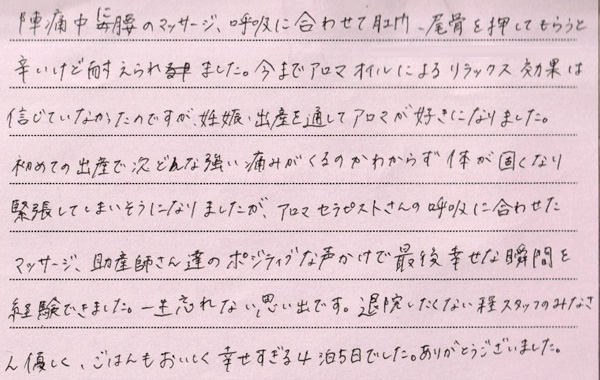 陣痛中に腰のマッサージ、呼吸に合わせて肛門、尾骨を押してもらうと
辛いけど耐えられました。今までアロマオイルによるリラックス効果は
信じていなかったのですが、妊娠、出産を通してアロマが好きになりました。
初めての出産で次どんな強い痛みがくるのかわからず体が固くなり
緊張してしまいそうになりましたが、アロマセラピストさんの呼吸に合わせた
マッサージ、助産師さん達のポジティブな声かけで最後幸せな瞬間を
経験できました。一生忘れない思い出です。退院したくない程スタッフのみなさ
ん優しく、ごはんもおいしく幸せすぎる4泊5日でした。ありがとうございました。